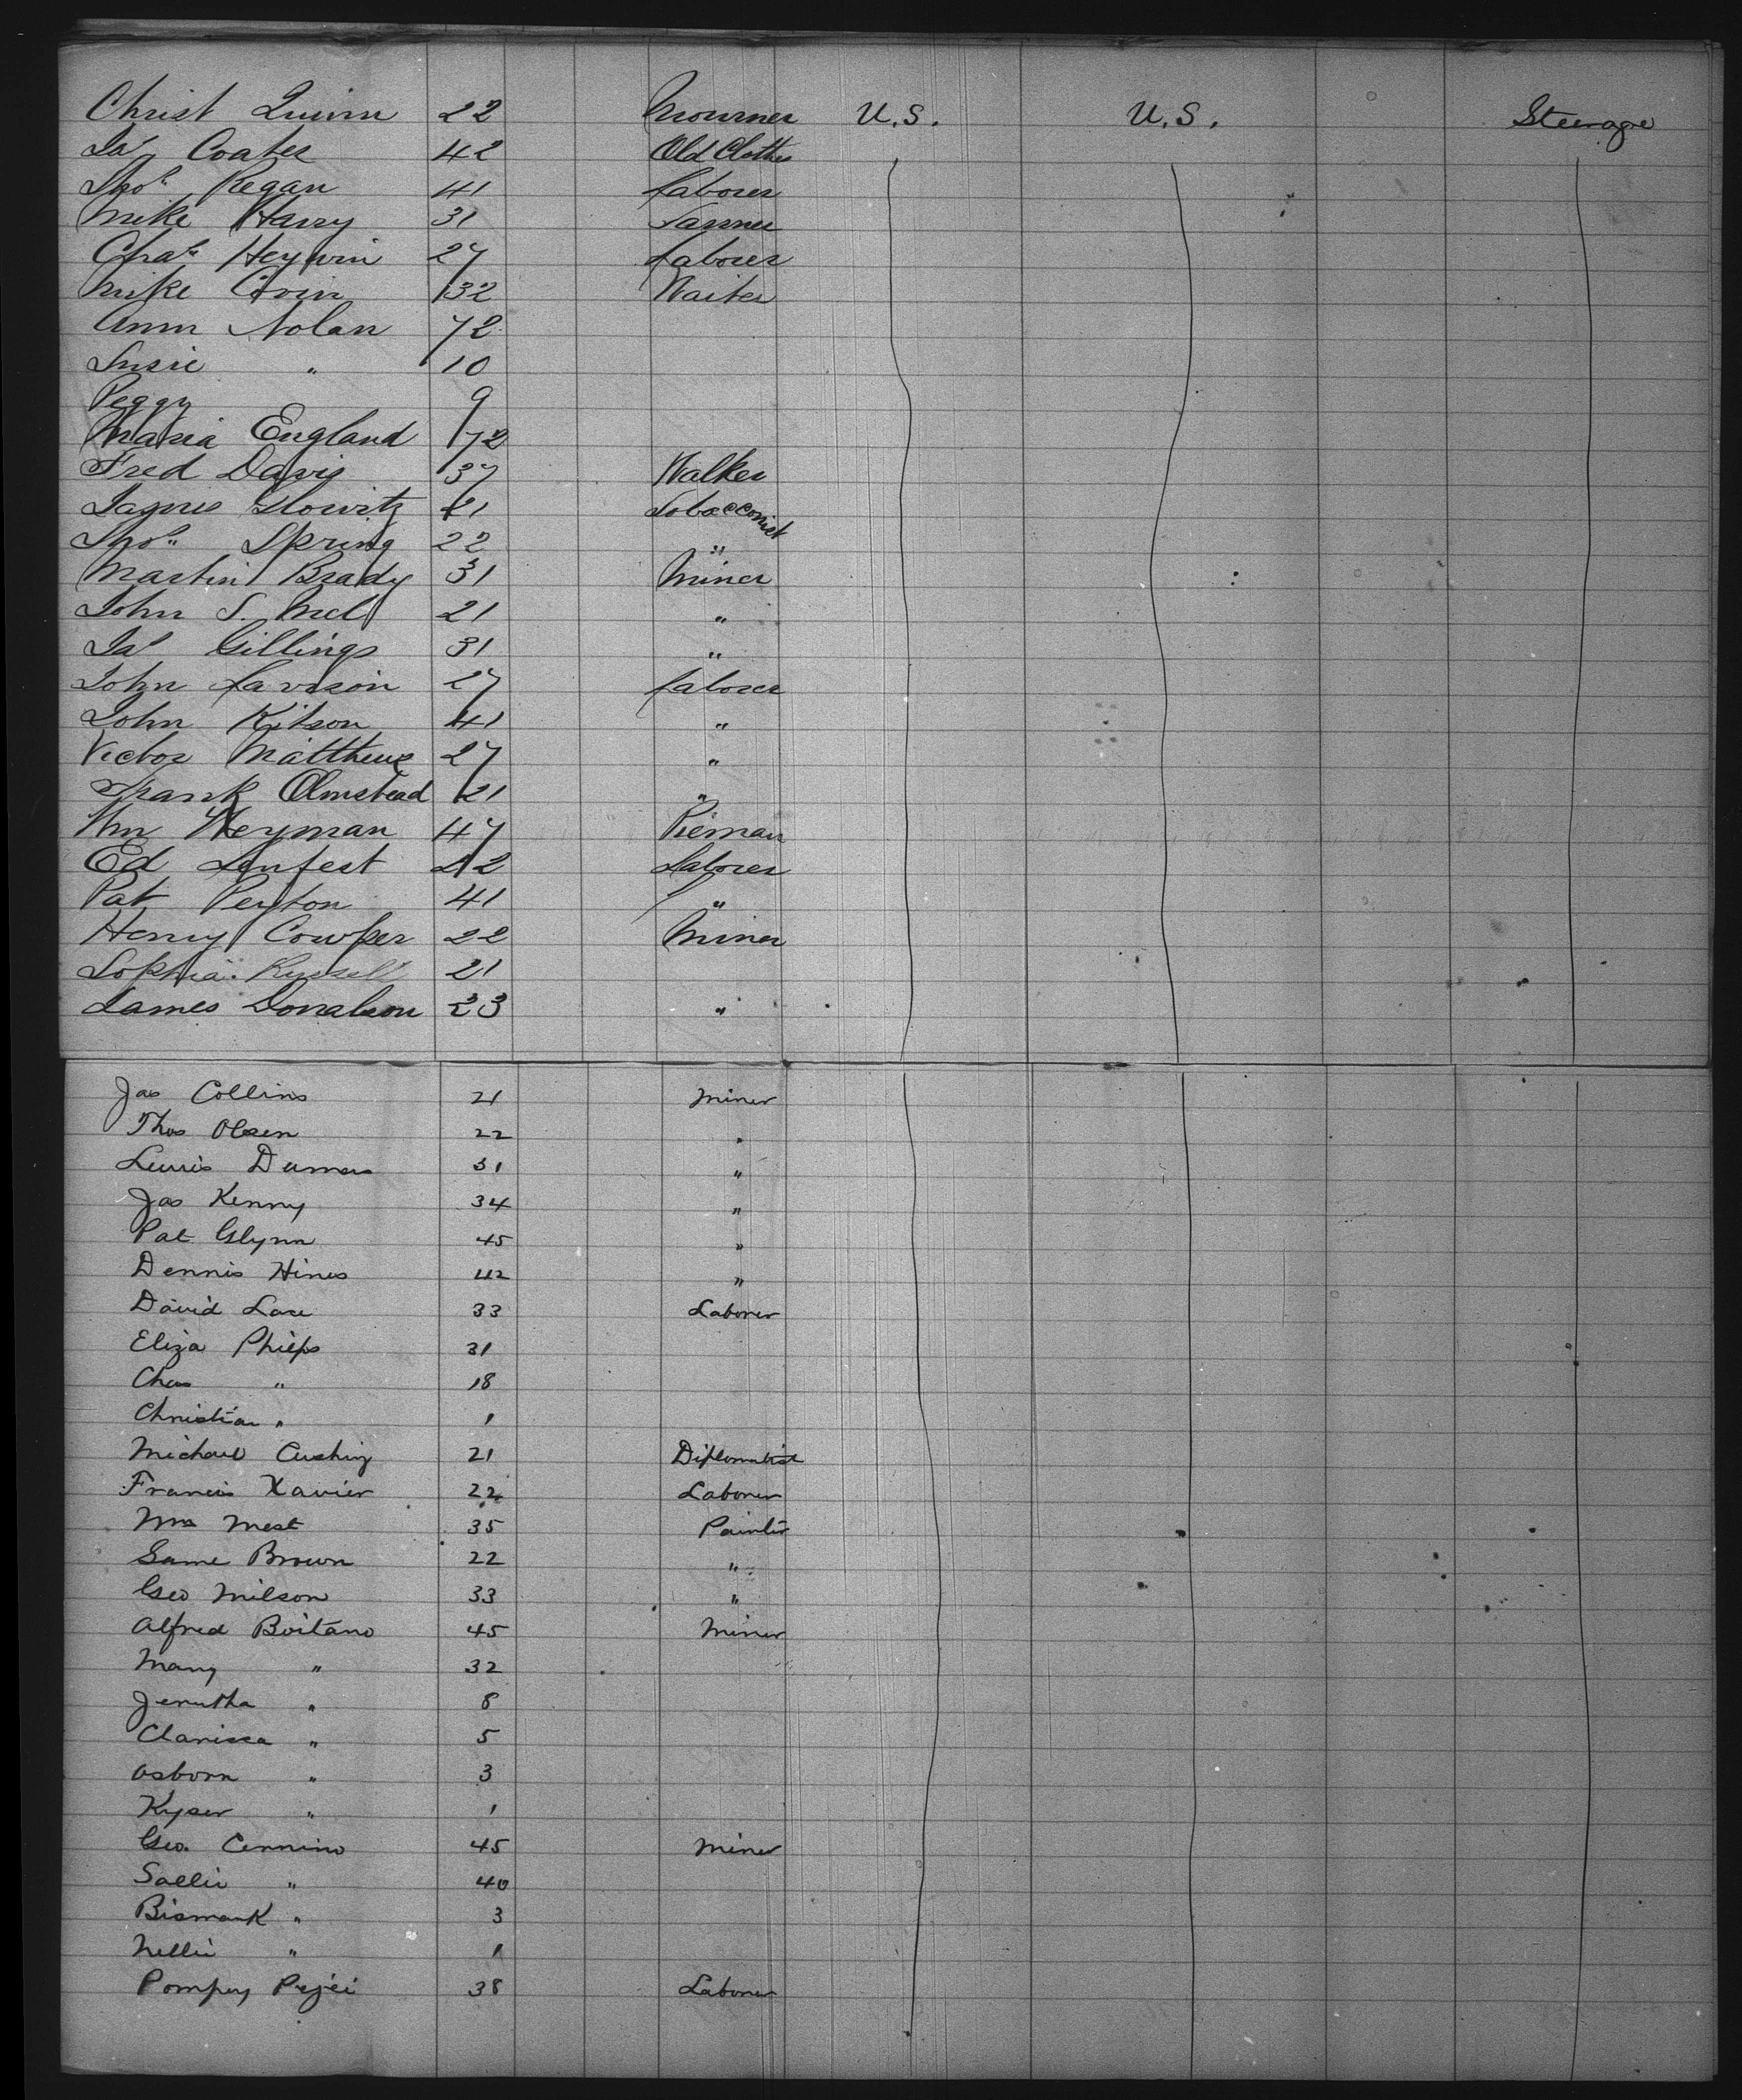 Christ Quinn 22 Mourner U.S. U.S. Steerage
Jas Coates 42 Old Clothes
Thos Regan 41 Laborer
Mike Harry 31 Tanner
Chas Heywin 27 Laborer
Mike Cronin 32 Waiter
Ann Nolan 72
Susie " 10
Peggy 9
Maria England 72
Fred Davis 37 Walker
James Glowitz 21 Tobacconist
Thos Spring 22 "
Martin Brady 31 Miner
John S. Mel 21 "
Jas Gillings 31 "
John Lawson 27 Laborer
John Kitson 41 "
Victor Matthews 27 "
Frank Olmstead 21 "
Wm Weyman 47 Pieman
Ed Lenfest 22 Laborer
Pat Peyton 41 "
Henry Cowper 22 Miner
Sophia Russell 21
James Donalson 23 "
Jas Collins 21 Miner
Thos Olsen 22 "
Lewis Dumas 31 "
Jas Kenny 34 "
Pat Glynn 45 "
Dennis Hines 42 "
David Lace 33 Laborer
Eliza Phelps 31
Chas " 18
Christian " 1
Michael Cushing 21 Diplomatist
Francis Xavier 22 Laborer
Mest 35 Painter
Same Brown 22 "
Geo Milson 33 "
Alfred Boitano 45 Miner
Mary " 32
Jerutha " 8
Clarissa " 5
Osborn " 3
Kyser " 1
Geo. Cennino 45 Miner
Sallie " 40
Bismark " 3
Nellie " 1
Pompey 38 Laborer